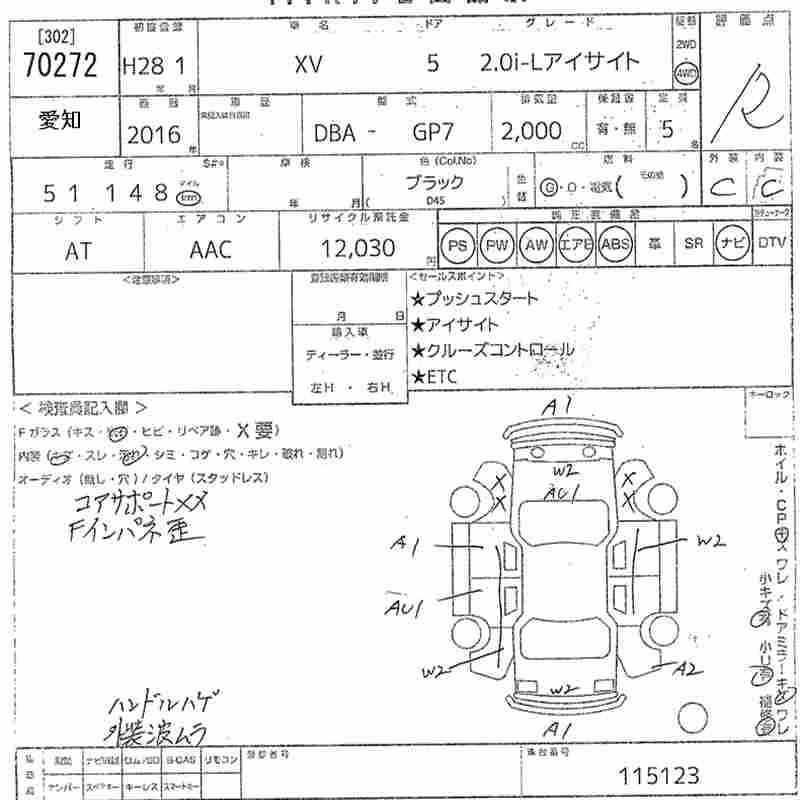 [302]
70272
初度登録
H28 1
年 月
車名
XV
ドア
5
グレード
2.0i-Lアイサイト
駆動
2WD
4WD
評価点
R
愛知
2016
年
車歴
型式
DBA - GP7
排気量
2,000
CC
保証書
有・無
定員
5
名
走行
51 148
マイル
km
S#*
車検
年 月
色(Col.No)
ブラック
D45
色替
燃料
G・O・電気( その他 )
外装
C
内装
C
シフト
AT
エアコン
AAC
リサイクル預託金
12,030
円
純正装備品
PS PW AW エアB ABS 革 SR ナビ DTV
<注意事項>
月 日
輸入車
ディーラー・並行
左H ・ 右H
<セールスポイント>
★プッシュスタート
★アイサイト
★クルーズコントロール
★ETC
キーロック
<検査員記入欄>
Fガラス(キズ・ ・ヒビ・リペア跡・X要)
内装(キズ・スレ・汚れ・シミ・コゲ・穴・キレ・破れ・割れ)
オーディオ(無し・穴)/タイヤ(スタッドレス)
コアサポートXX
Fインパネ歪
ハンドルハゲ
外装波ムラ
A1
W2
AU1
X X
X X
A1
W2
AU1
W2
A2
W2
A1
ホイル・CPキズワレ/ドアミラーキズワレ
車台番号
115123
登録番号
ナンバー スペアキー キーレス スマートキー
リモコン
B-CAS